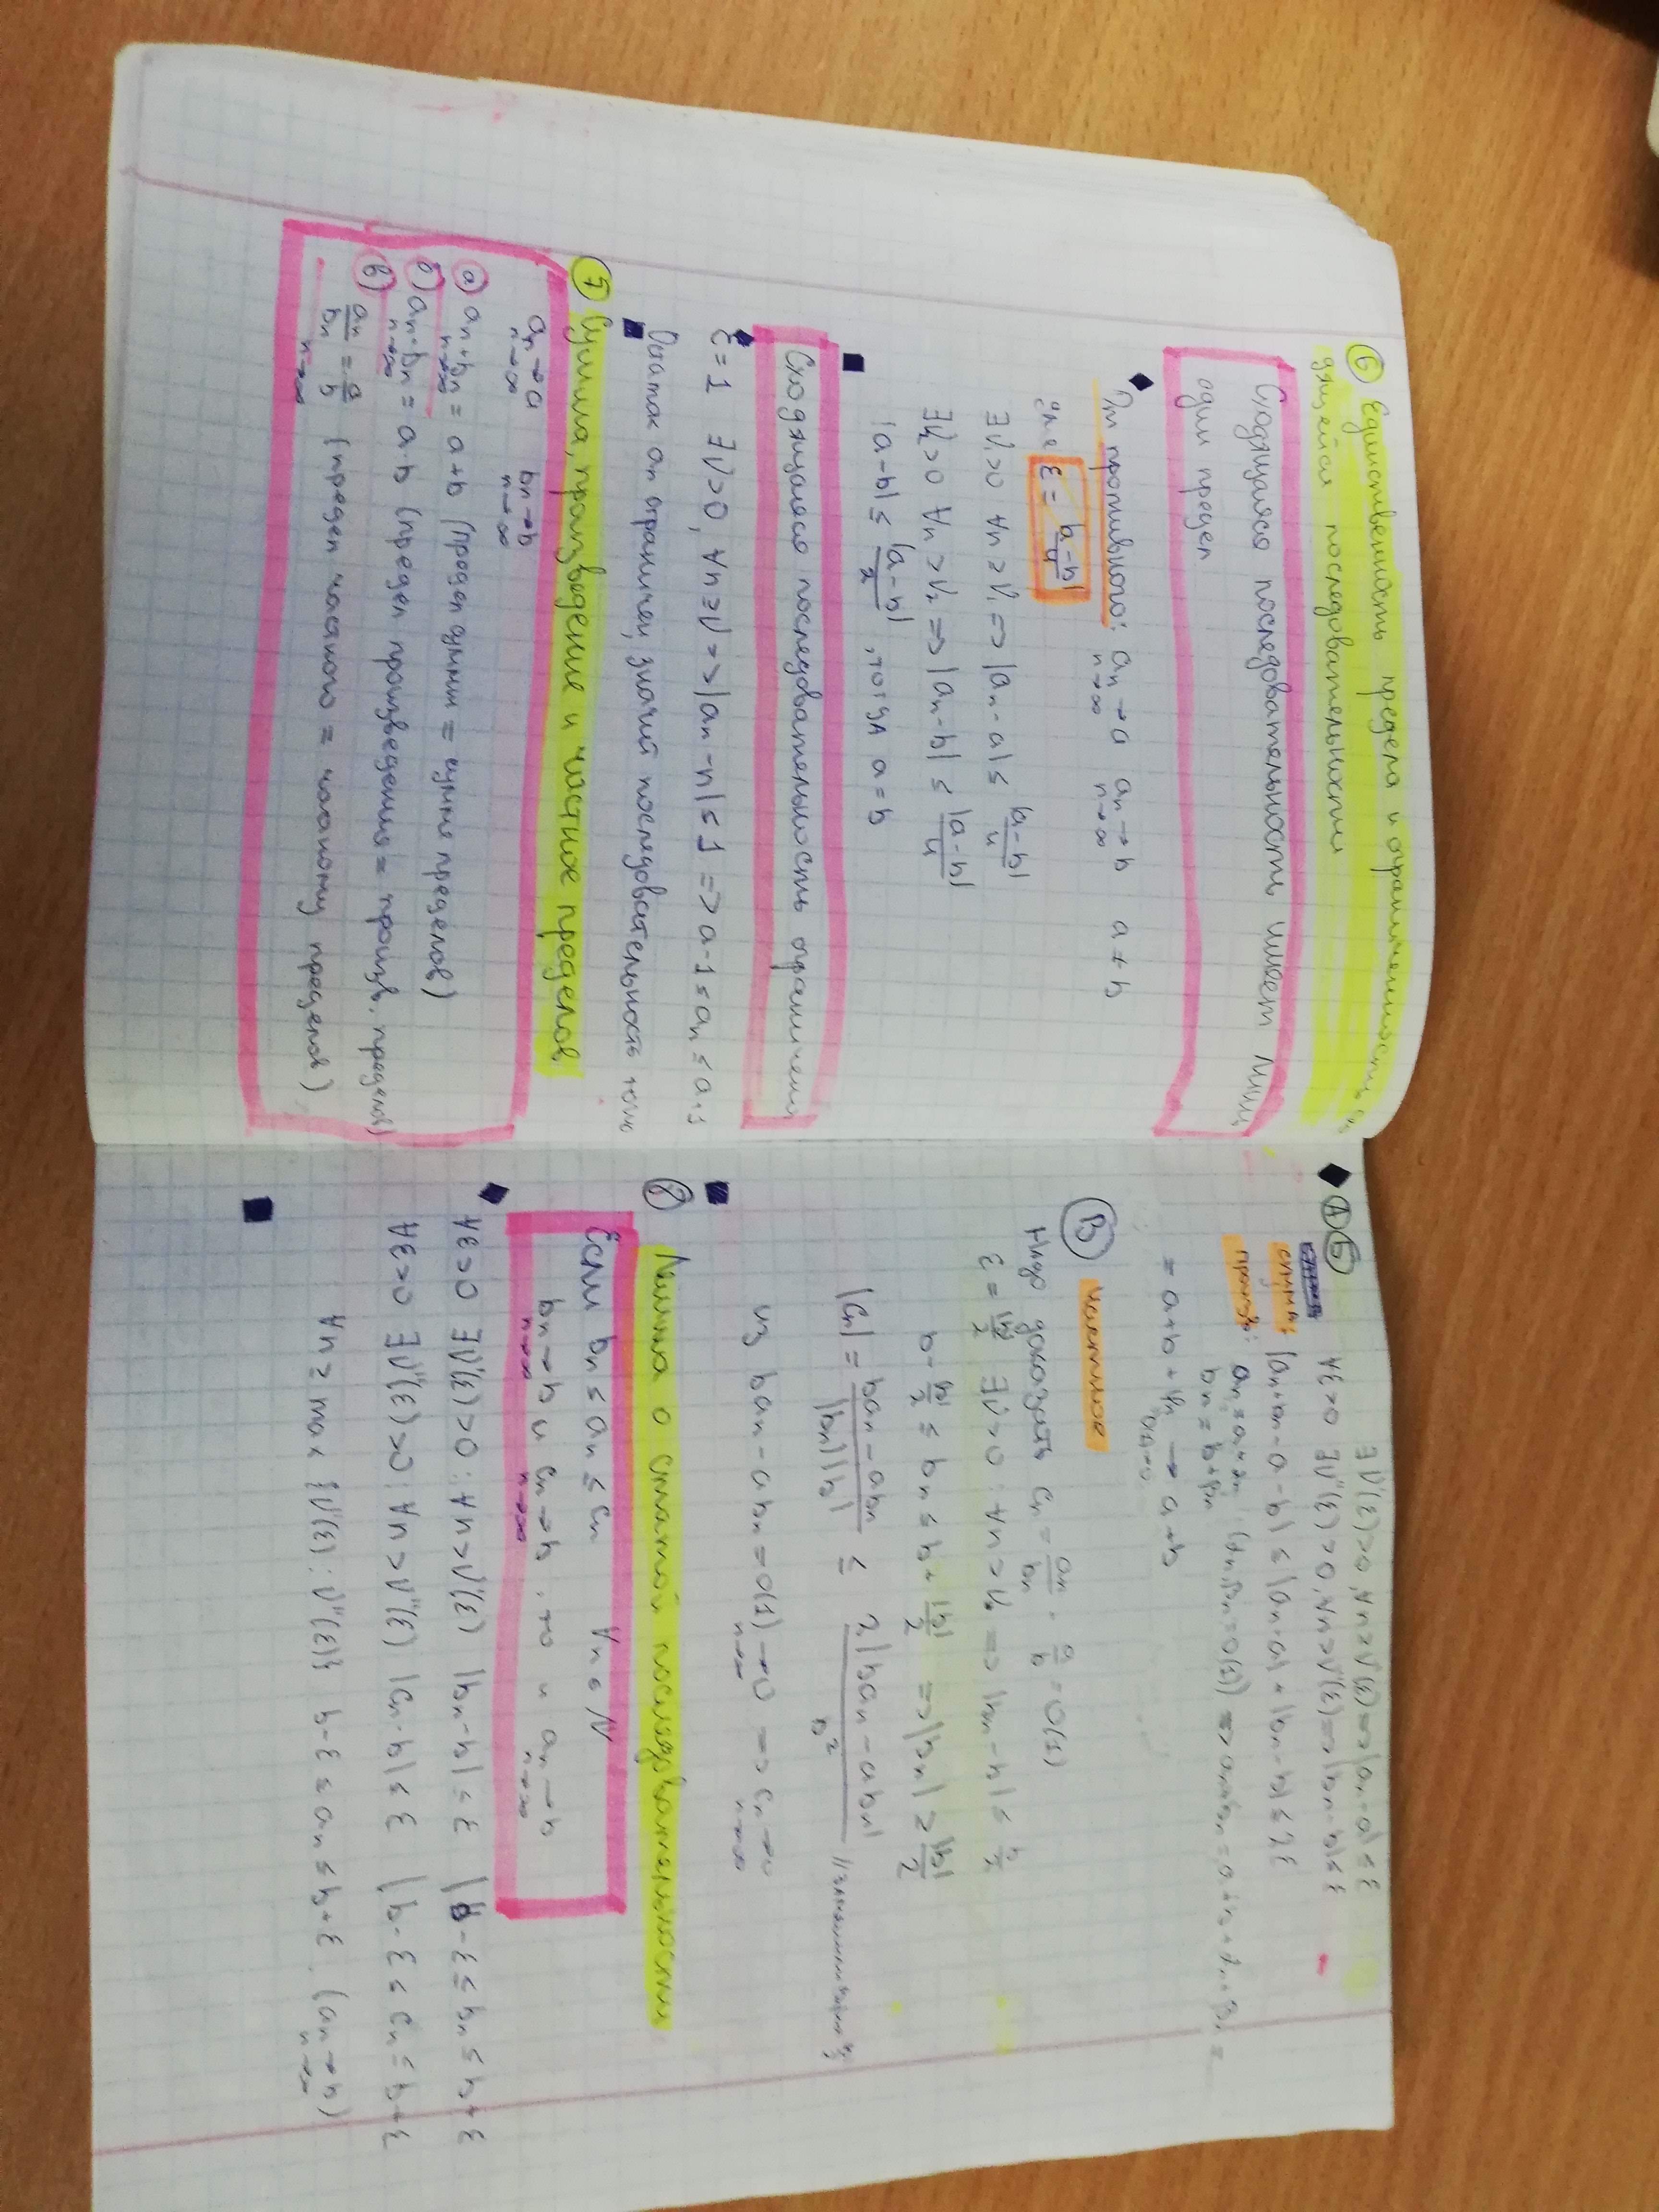 ⑥ Единственность предела и ограниченность схо-
дящейся последовательности
Сходящаяся последовательность имеет лишь
один предел
От противного: an → a an → b a ≠ b
n→∞ n→∞
для ε = |a-b|/4
∃V₁>0 ∀n ≥ V₁ => |an - a| ≤ |a-b|/4
∃V₂>0 ∀n > V₂ => |an - b| ≤ |a-b|/4
|a-b| ≤ |a-b|/2, тогда a=b
Сходящаяся последовательность ограничена
ε = 1 ∃V>0, ∀n ≥ V => |an - a| ≤ 1 => a-1 ≤ an ≤ a+1
an ограничен, значит последовательность тоже
⑦ Сумма, произведение и частное пределов
an → a bn → b
n→∞ n→∞
а) an + bn = a + b (предел суммы = сумме пределов)
n→∞
б) an · bn = a · b (предел произведения = произв. пределов)
n→∞
в) an/bn = a/b (предел частного = частному пределов)
n→∞
А Б ∃V'(ε)>0, ∀n ≥ V'(ε) => |an - a| ≤ ε
∀ε>0 ∃V''(ε)>0, ∀n > V''(ε) => |bn - b| ≤ ε
сумма: |an + bn - a - b| ≤ |an - a| + |bn - b| ≤ 2ε
произв: an = a + αn
bn = b + βn (αn, βn = o(1)) => an + bn = a + b + αn + βn =
= a + b + γn → a + b
В частное
Надо доказать cn = an/bn - a/b = o(1)
ε = |b|/2 ∃V>0 : ∀n > V => |bn - b| ≤ b/2
b - |b|/2 ≤ bn ≤ b + |b|/2 => |bn| ≥ |b|/2
|cn| = |ban - abn|/|bn||b| ≤ 2|ban - abn|/b²
из ban - abn = o(1) → 0 => cn → 0
n→∞ n→∞
⑧ Лемма о сжатой последовательности
Если bn ≤ an ≤ cn ∀n ∈ N
bn → b и cn → b, то и an → b
n→∞ n→∞ n→∞
∀ε>0 ∃V'(ε)>0 : ∀n > V'(ε) |bn - b| ≤ ε | b - ε ≤ bn ≤ b + ε
∀ε>0 ∃V''(ε)>0 : ∀n > V''(ε) |cn - b| ≤ ε | b - ε ≤ cn ≤ b + ε
∀n ≥ max {V'(ε) ; V''(ε)} b - ε ≤ an ≤ b + ε (an → b)
n→∞